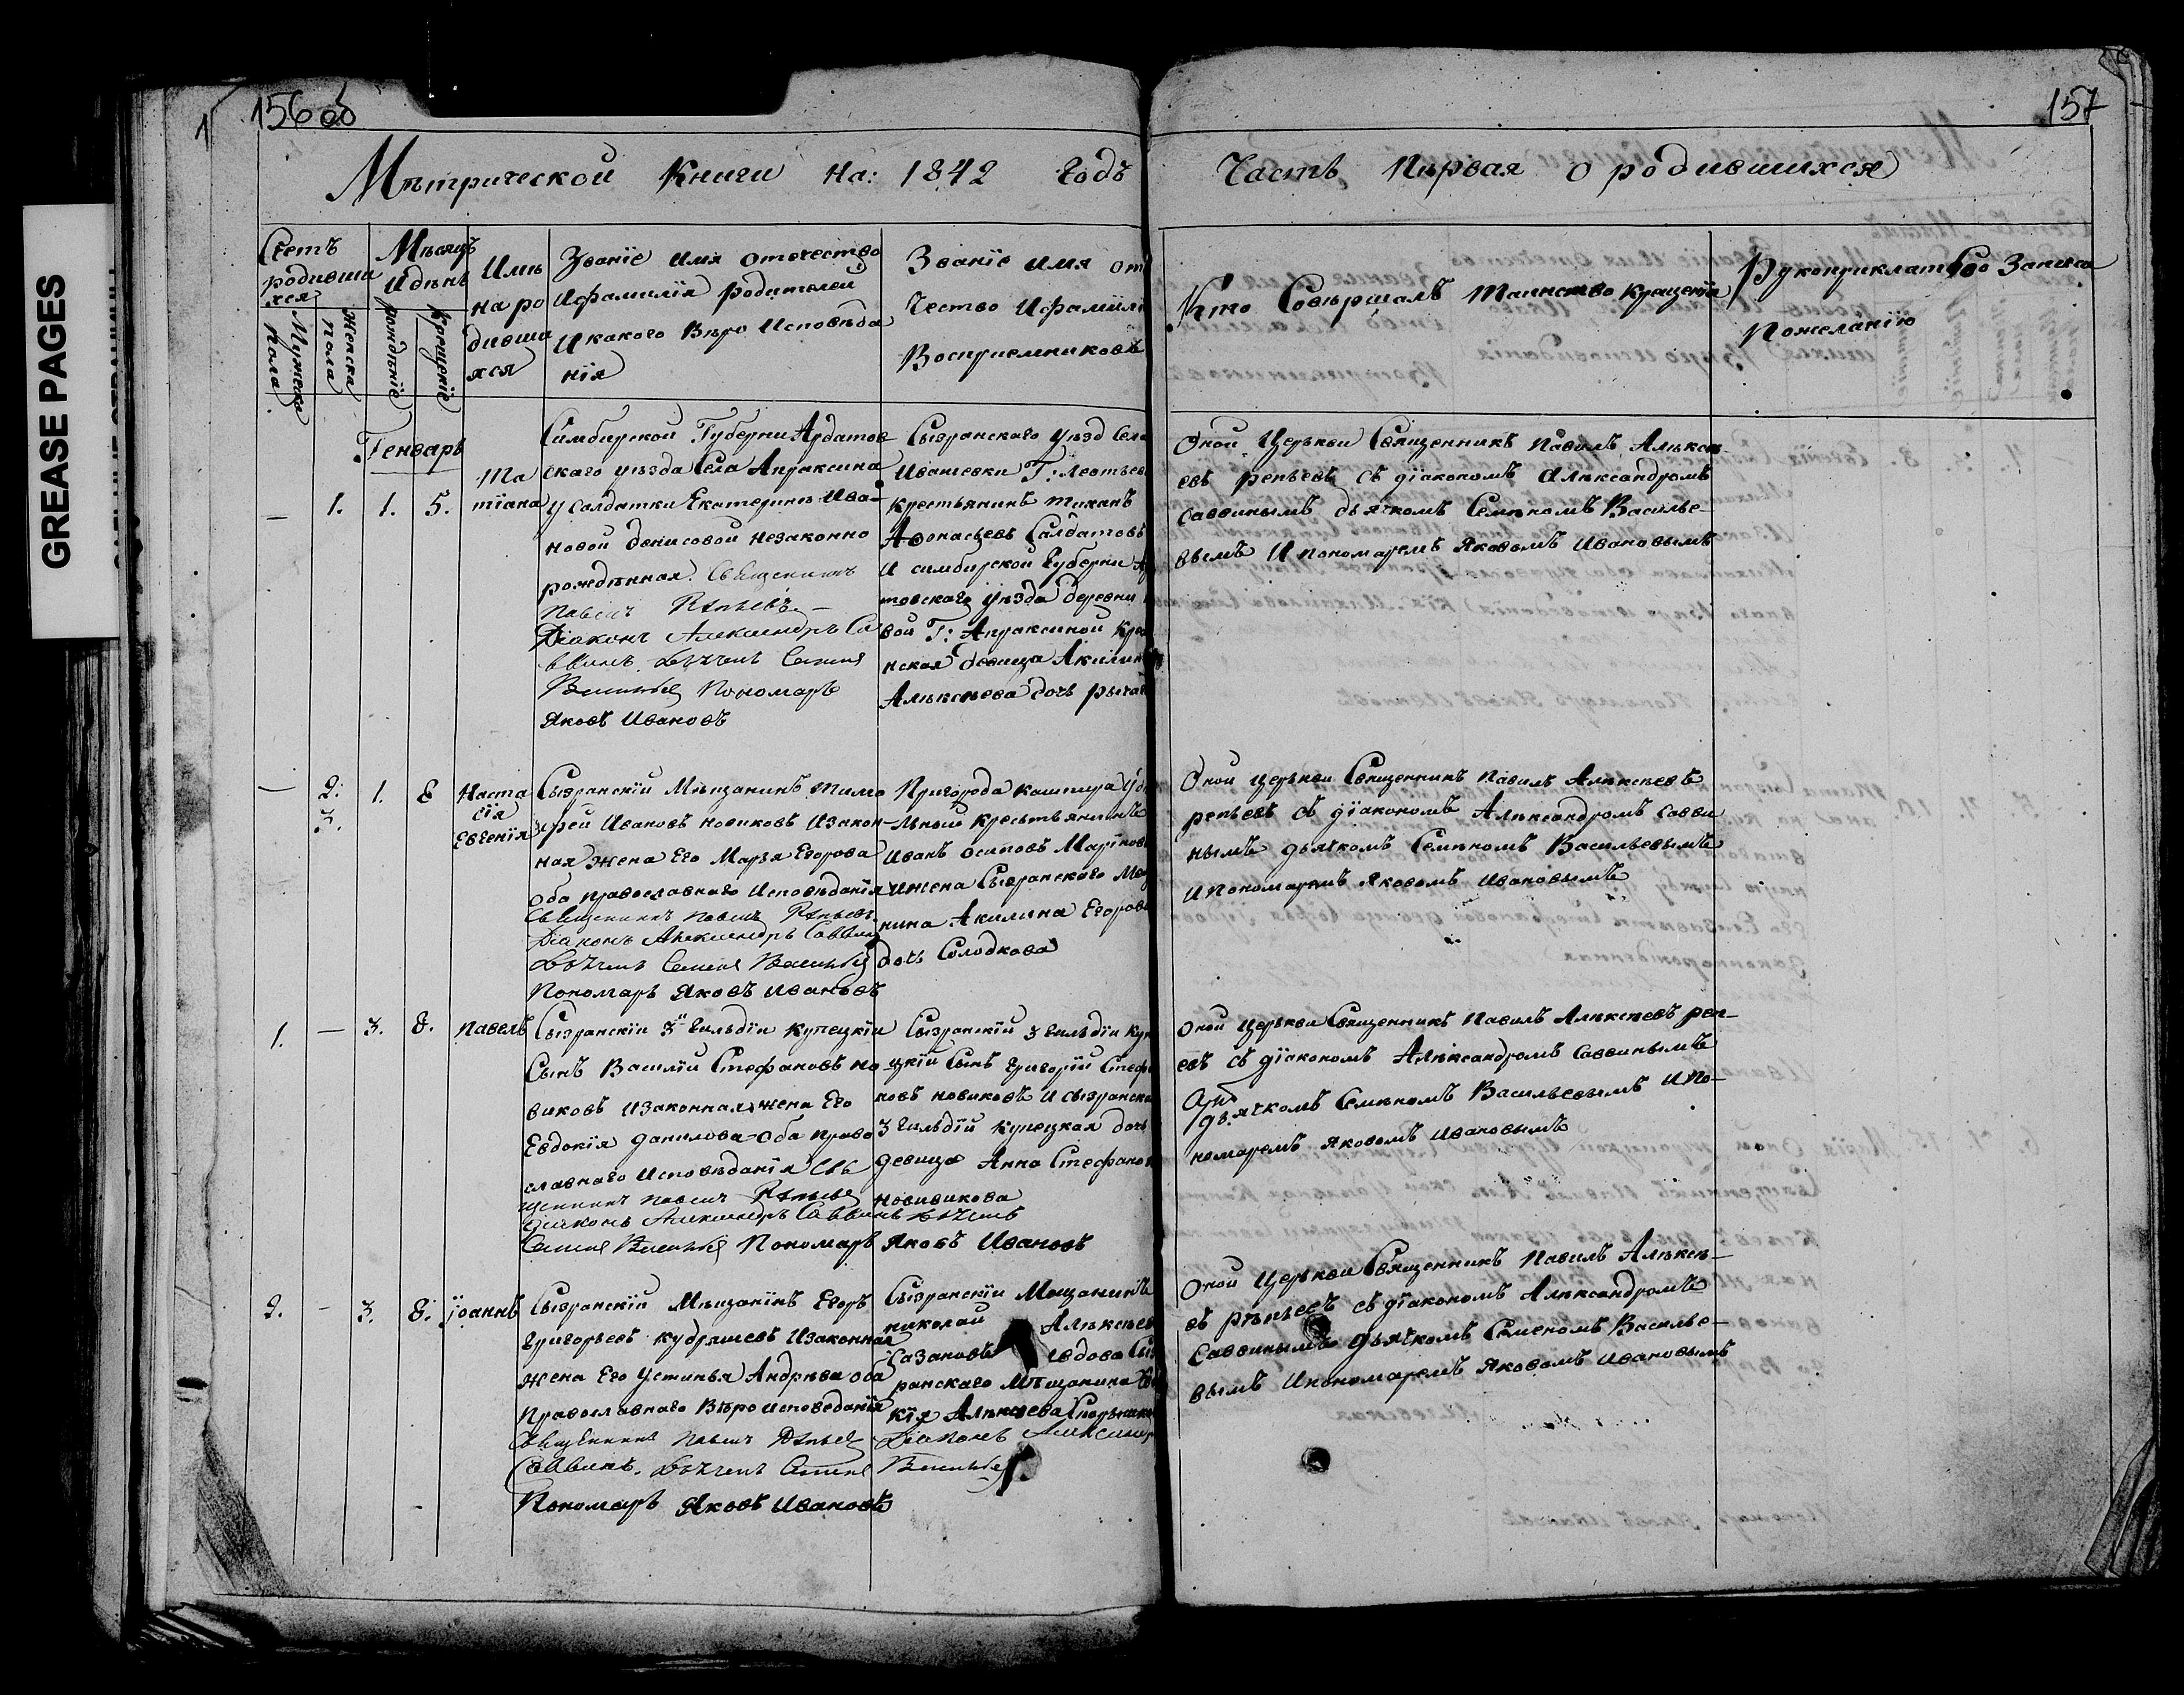 GREASE PAGES
1 156 об
157
Мѣтрической Книги На: 1842 Годъ
Часть Пѣрвая о родившихся
Счетъ родивша хся
Мужеска пола
Женска пола
Мѣсяцъ И дѣнь
рождѣніе
Крещеніе
Имѣ на ро дивши хся
Званіе Имя отечество
И фамилія родителей
И какого Вѣро Исповѣда
нія
Званіе имя от
чество И фамили
Восприемниковъ
Кто Совѣршалъ таинство крещенія
Рукоприклатство Записа
Пожеланію
Генварь
— 1. 1. 5.
Та
тіана
Симбирской Губерни Ардатов
скаго уѣзда Села Апраксина
у Салдатки Екатерины Ива-
новой Денисовой незаконно
рождѣнная. Священникъ
Павелъ Репьевъ
Діаконъ Александръ Са
ввинъ. Дьячекъ Семенъ
Васильев Пономарь
Яковъ Ивановъ
Сызранскаго уѣзд Села
Ивашевки Г: Леотьев
крестьянинъ
Афонасьевъ Салдатовъ
И симбирской Губерни Ар
товскаго уѣзда деревни
вой Г: Апраксиной Крес
нская девица Акилин
Алѣксѣева дочь
Оной Церькви Священникъ Павилъ Алѣксе-
евъ репьевъ съ діакономъ Алѣксандромъ
Саввинымъ дьячкомъ Семѣномъ Василье-
вымъ И пономаремъ Яковомъ Ивановымъ
— 2. 1. 8
3.
Наста
сія
Евгенія
Сызранскій Мѣщанинъ Тимо
фей Ивановъ Новиковъ И закон-
ная жена Его Марья Егорова
Оба православнаго Исповѣданія
Священникъ Павелъ Репьевъ
Діаконъ Александръ Саввин
Дьячекъ Семенъ Васильев
Пономарь Яковъ Ивановъ
Пригорода Кашпира Удѣ
льный Крестьянинъ
Иванъ Осиповъ Марінов
И жена Сызранскаго Мещ
нина Акилина Егорова
дочь Солодкова
Оной церькви Священникъ Павилъ Алѣксѣевъ
репьевъ съ діакономъ Алѣксандромъ Савви
нымъ дьячкомъ Семѣномъ Васильевымъ
И Пономаремъ Яковомъ Ивановымъ
1. — 3. 8. Павелъ
Сызранскій 3й Гильдіи Купецкій
Сынъ Василій Стефановъ Но-
виковъ И законная жена Его
Евдокія Данилова Оба право
славнаго Исповѣданія Свя
щенникъ Павелъ Репьев
Діаконъ Александръ Саввинъ Дьячекъ
Семенъ Васильев Пономарь Яковъ Ивановъ
Сызранскій 3 Гильдіи Куп
ецкій Сынъ Григорій Стеф
новъ Новиковъ И Сызранска
3 Гильдій Купецкая дочь
девица Анна Стефанов
Новивикова
Оной Церькви Священникъ Павилъ Алѣксѣевъ реп-
евъ съ діакономъ Алѣксандромъ Саввинымъ
дьячкомъ Семѣномъ Васильевымъ И По-
номаремъ Яковомъ Ивановымъ
2. — 3. 8. Іоаннъ
Сызранскій Мѣщанинъ Егоръ
Григорьевъ Кудряшевъ И законная
жена Его Устинья Андрѣва оба
Православнаго Вѣро исповеданія
Священникъ Павелъ Репьев Діаконъ Александръ
Саввинъ. Дьячекъ Семенъ Васильев
Пономарь Яковъ Ивановъ
Сызранскій Мещанинъ
Николай Алѣксѣев
Сазановъ Ивдова Сыз
ранскаго Мѣщанина
кія Алѣксѣева
Оной Церькви Священникъ Павилъ Алѣксѣ-
въ рѣпьевъ съ діакономъ Алѣксандромъ
Саввинымъ Дьячкомъ Семеномъ Василье-
вымъ И пономаремъ Яковомъ Ивановымъ